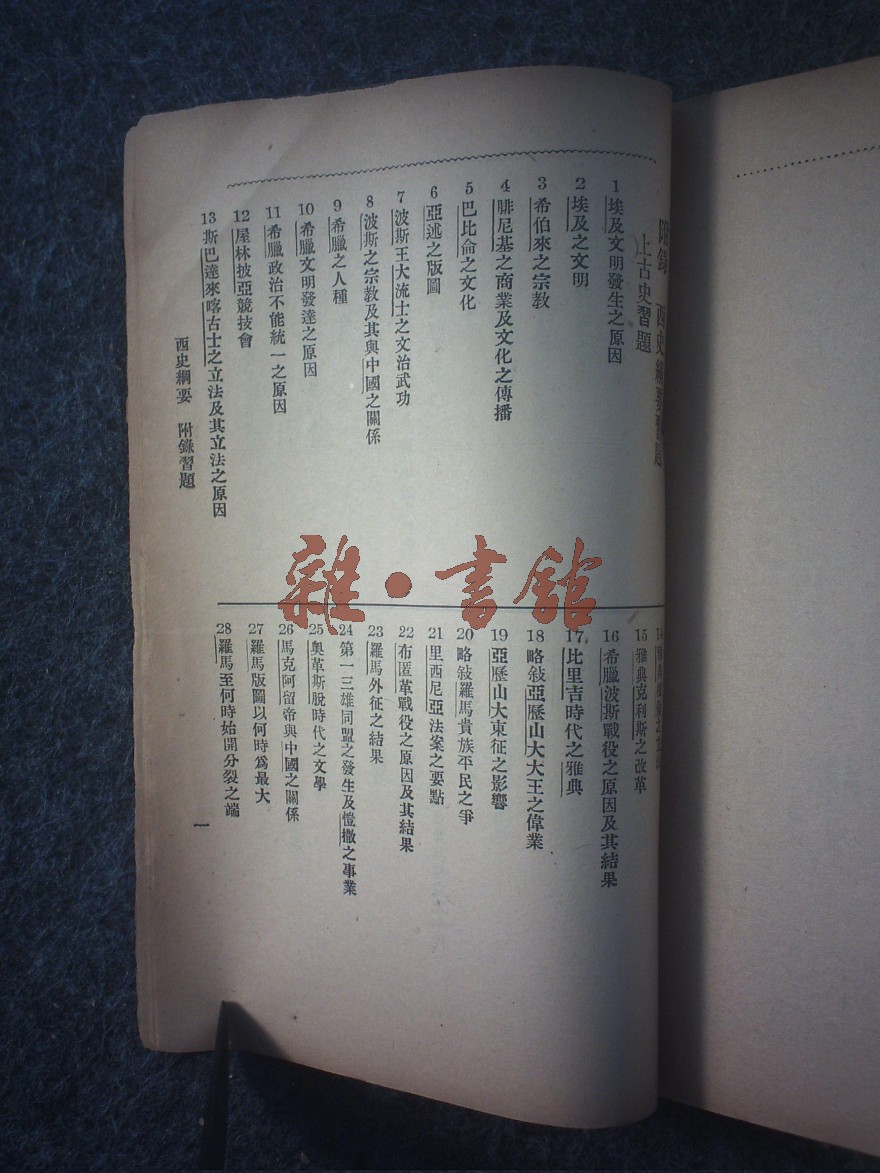 附錄　西史綱要習題
上古史習題
1 埃及文明發生之原因
2 埃及之文明
3 希伯來之宗教
4 腓尼基之商業及文化之傳播
5 巴比侖之文化
6 亞述之版圖
7 波斯王大流士之文治武功
8 波斯之宗教及其與中國之關係
9 希臘之人種
10 希臘文明發達之原因
11 希臘政治不能統一之原因
12 屋林披亞競技會
13 斯巴達來喀古士之立法及其立法之原因
14
15 雅典克利斯之改革
16 希臘波斯戰役之原因及其結果
17 比里吉時代之雅典
18 略敍亞歷山大大王之偉業
19 亞歷山大東征之影響
20 略敍羅馬貴族平民之爭
21 里西尼亞法案之要點
22 布匿革戰役之原因及其結果
23 羅馬外征之結果
24 第一三雄同盟之發生及愷撒之事業
25 奧革斯脫時代之文學
26 馬克阿留帝與中國之關係
27 羅馬版圖以何時爲最大
28 羅馬至何時始開分裂之端
西史綱要　附錄習題
一
雜·書館